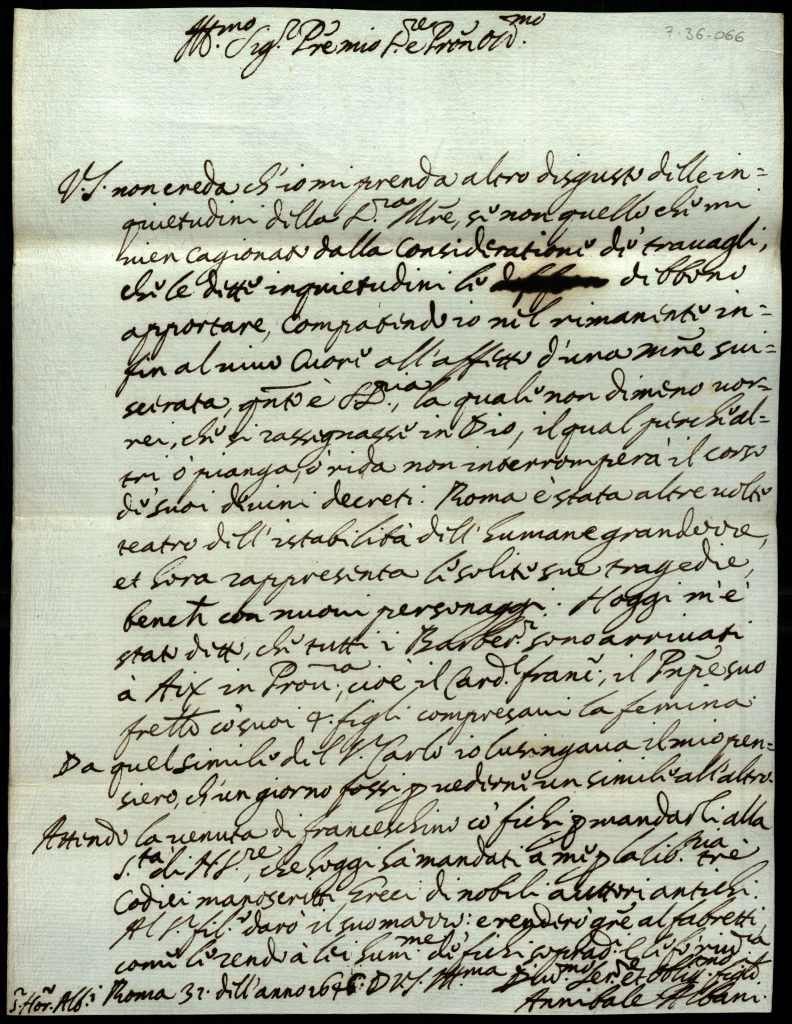 Ill.mo Sig.r Pr̃e mio S.re e Pron̄ Oss.mo
7-36-066
V.S. non creda ch'io mi prenda altro disgusto delle in=
quietudini della S.ra M̃re, se non quello che mi
vien cagionato dalla consideratione de' travagli,
che le dette inquietudini le debbono
apportare, compatendo io nel rimanente in=
fin al vivo cuore all'affetto d'una m̃re svi=
scerata, qñto è S.S.ria, la quale non dimeno vor=
rei, che si rassegnasse in Dio, il qual perche al=
tri ò pianga, ò rida non interromperà il corso
de' suoi divini decreti. Roma è stata altre volte
teatro dell'istabilità dell'humane grandezze,
et hora rappresenta le solite sue tragedie,
bench con nuovi personaggi. Hoggi m'è
stato detto, che tutti i Barber.ni sono arrivati
à Aix in Prov.a, cioè il Card.l Franc., il Pn̄pe suo
frello co' suoi 4. figli compresavi la femina.
Da quel simile del S. Carlo io lusingava il mio pen=
siero, ch'un giorno fossi p vederne un simile all'altro.
Attendo la venuta di Franceschino co' fichi p mandarli alla
S.tà di N.S.re, che hoggi hà mandati à me p la lib.ria tre
Codici manoscritti greci di nobili auttori antichi.
Al S. fil. darò il suo e renderò gr̃e al fabretti,
come le rendo à lei hum.me de' fichi
S. Hor. Alb.i Roma 31. dell'anno 1646. D V.S. Ill.ma Ser.re et Obblig. figlio
Annibale Albani.